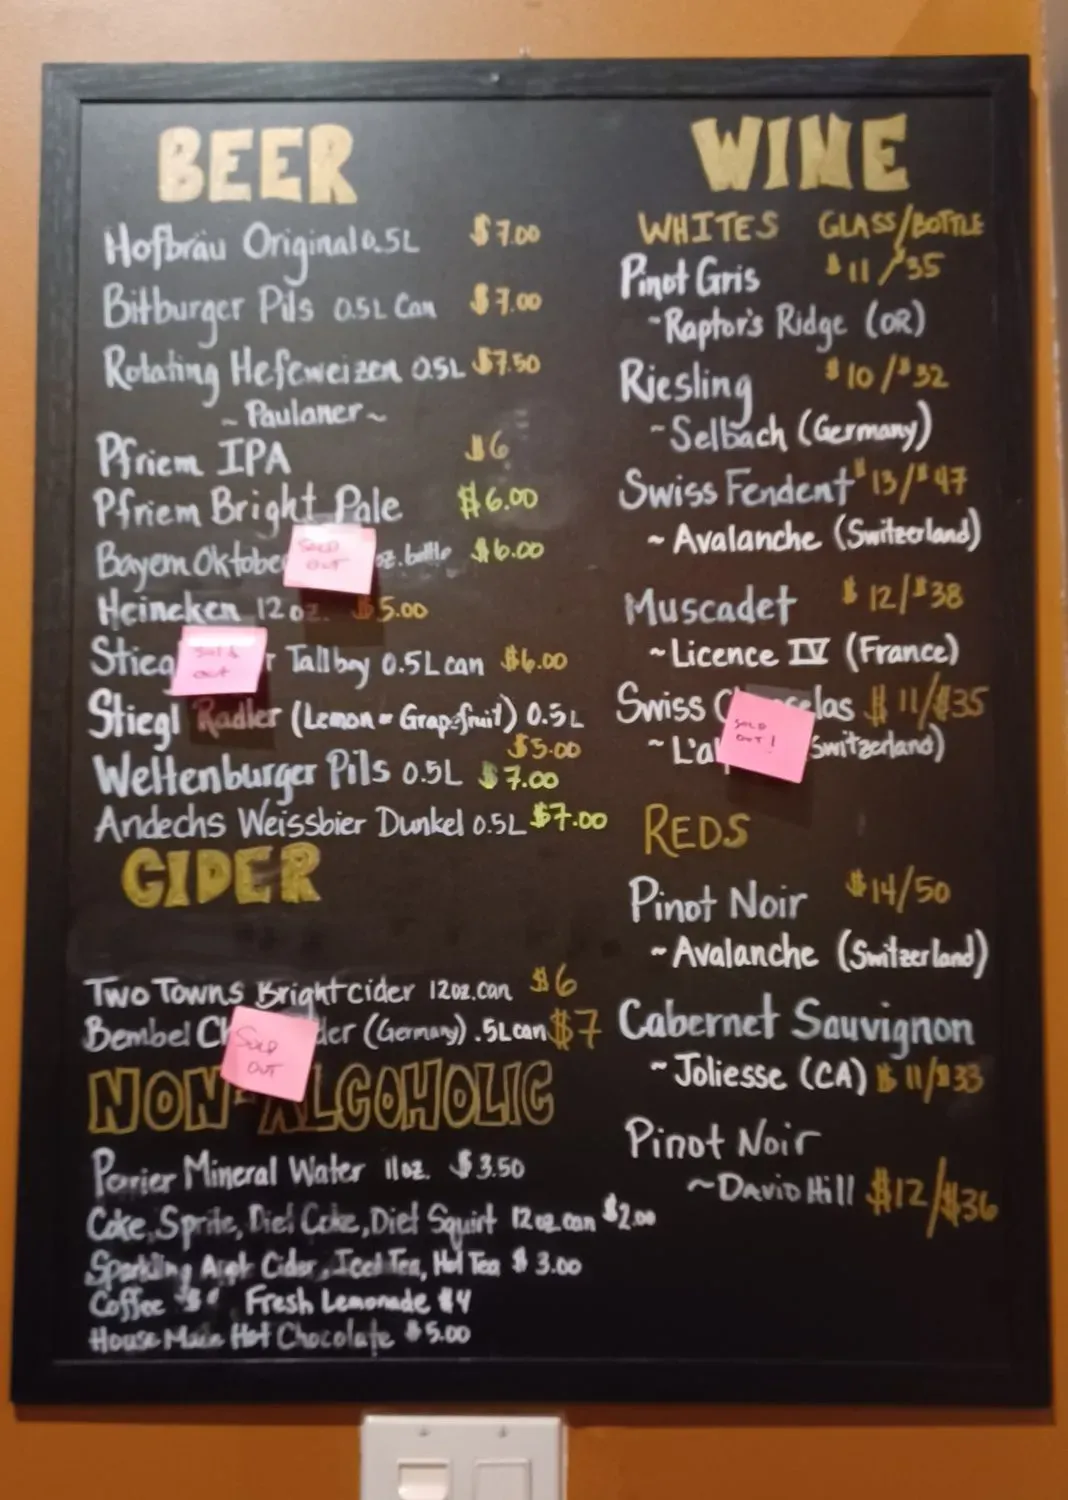 BEER
Hofbräu Original 0.5L $7.00
Bitburger Pils 0.5L Can $7.00
Rotating Hefeweizen 0.5L $7.50
~ Paulaner ~
Pfriem IPA $6
Pfriem Bright Pale $6.00
Bayern Oktobe oz. bottle $6.00
SOLD
OUT
Heineken 12oz. $5.00
Stieg r Tallboy 0.5L can $6.00
SOLD
OUT
Stiegl Radler (Lemon or Grapefruit) 0.5L
$5.00
Weltenburger Pils 0.5L $7.00
Andechs Weissbier Dunkel 0.5L $7.00
CIDER
Two Towns Bright cider 12oz. can $6
Bembel der (Germany) .5L can $7
SOLD
OUT
NON-ALCOHOLIC
Perrier Mineral Water 11oz. $3.50
Coke, Sprite, Diet Coke, Diet Squirt 12oz can $2.00
Sparkling Cider, Iced Tea, Hot Tea $3.00
Coffee Fresh Lemonade $4
House Made Hot Chocolate $5.00
WINE
WHITES GLASS/BOTTLE
Pinot Gris $11/$35
~Raptor's Ridge (OR)
Riesling $10/$32
~Selbach (Germany)
Swiss Fendent $13/$47
~Avalanche (Switzerland)
Muscadet $12/$38
~Licence IV (France)
Swiss C selas $11/$35
~L'a Switzerland)
SOLD
OUT!
REDS
Pinot Noir $14/50
~Avalanche (Switzerland)
Cabernet Sauvignon
~Joliesse (CA) $11/$33
Pinot Noir
~David Hill $12/$36